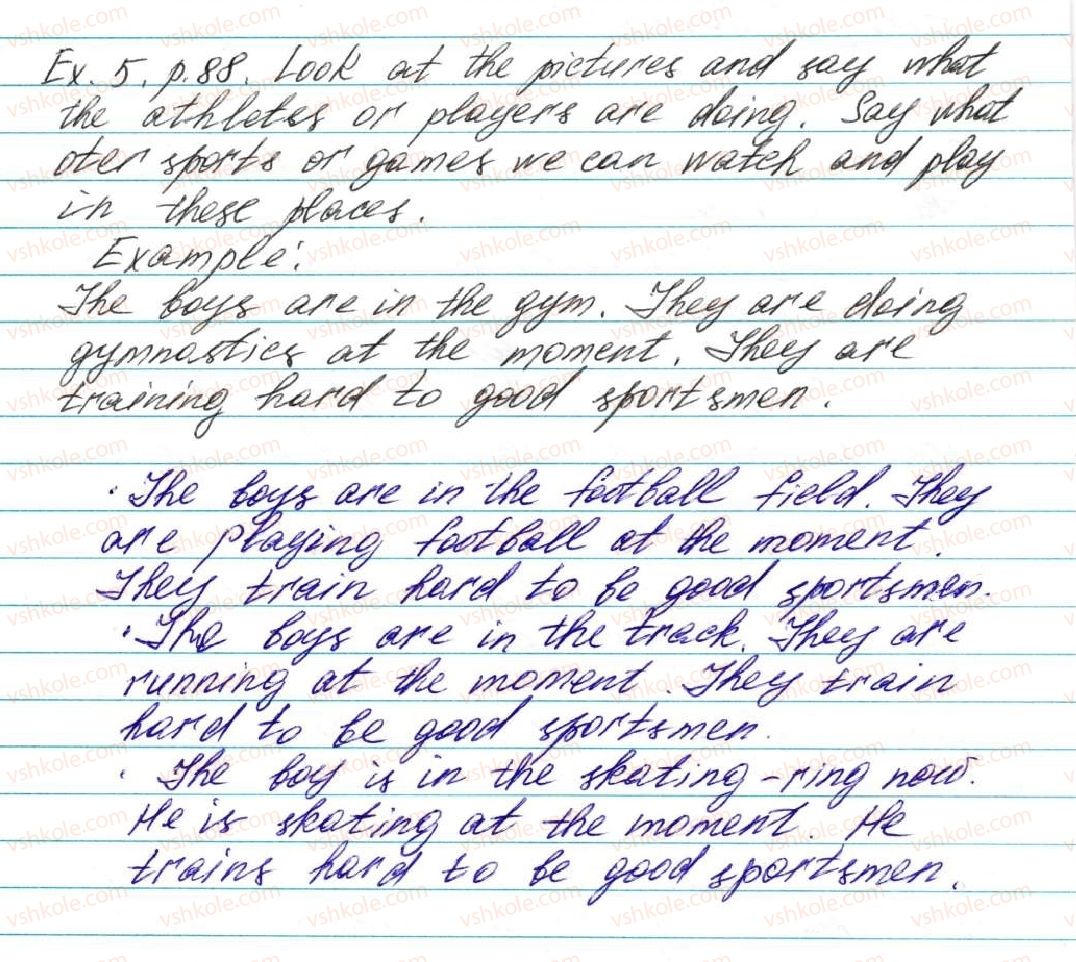 Ex. 5. p. 88. Look at the pictures and say what
the athletes or players are doing. Say what
oter sports or games we can watch and play
in these places.
Example:
The boys are in the gym. They are doing
gymnastics at the moment. They are
training hard to good sportsmen.
· The boys are in the football field. They
are playing football at the moment.
They train hard to be good sportsmen.
· The boys are in the track. They are
running at the moment. They train
hard to be good sportsmen.
· The boy is in the skating-ring now.
He is skating at the moment. He
trains hard to be good sportsmen.